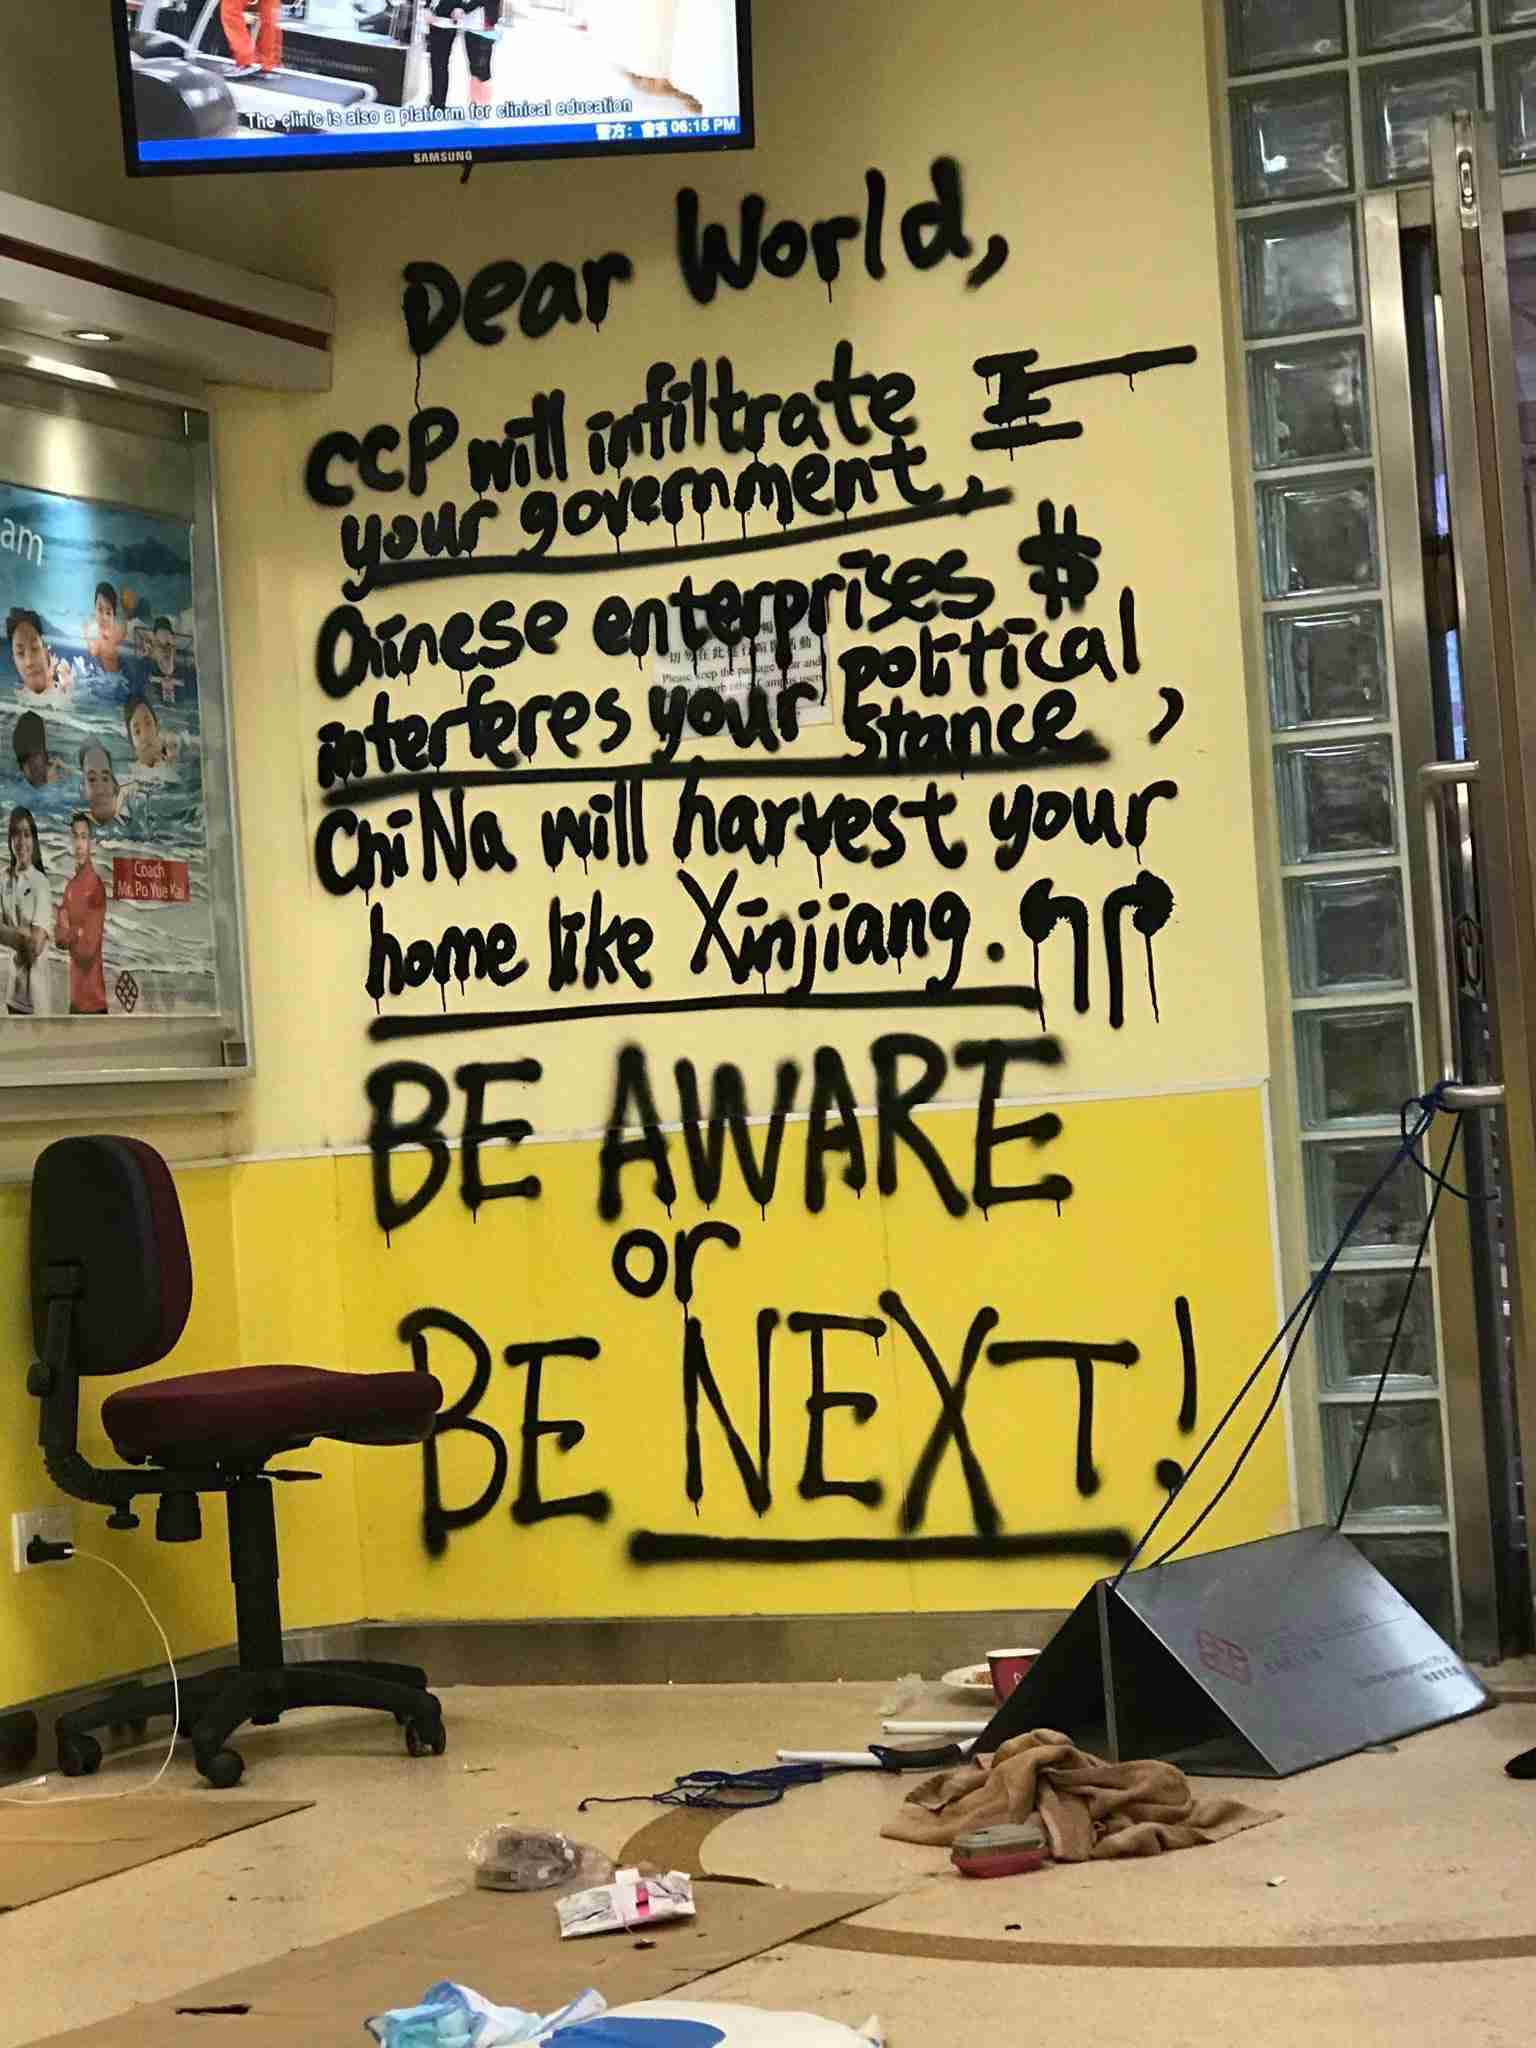 The clinic is also a platform for clinical education
警方: 06:15 PM
SAMSUNG
Dear World,
CCP will infiltrate
your government,
Chinese enterprises $
interferes your political
stance,
ChiNa will harvest your
home like Xinjiang.
BE AWARE
or
BE NEXT!
am
Coach
Mr. Po Yue Kai
切勿在此進行
Please keep the passage clear and
Campus users